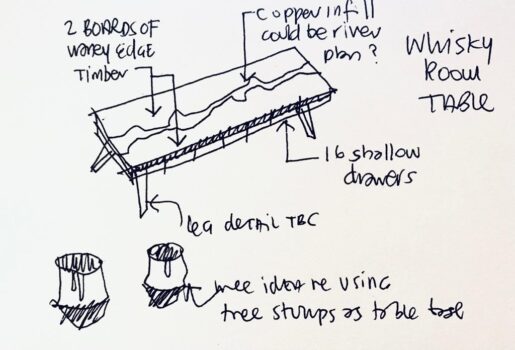 2 BOARDS OF
waney EDGE
TIMBER
copper infill
could be river
plan?
Whisky
Room
TABLE
16 shallow
drawers
leg DETAIL TBC
wee idea re using
tree stumps as table